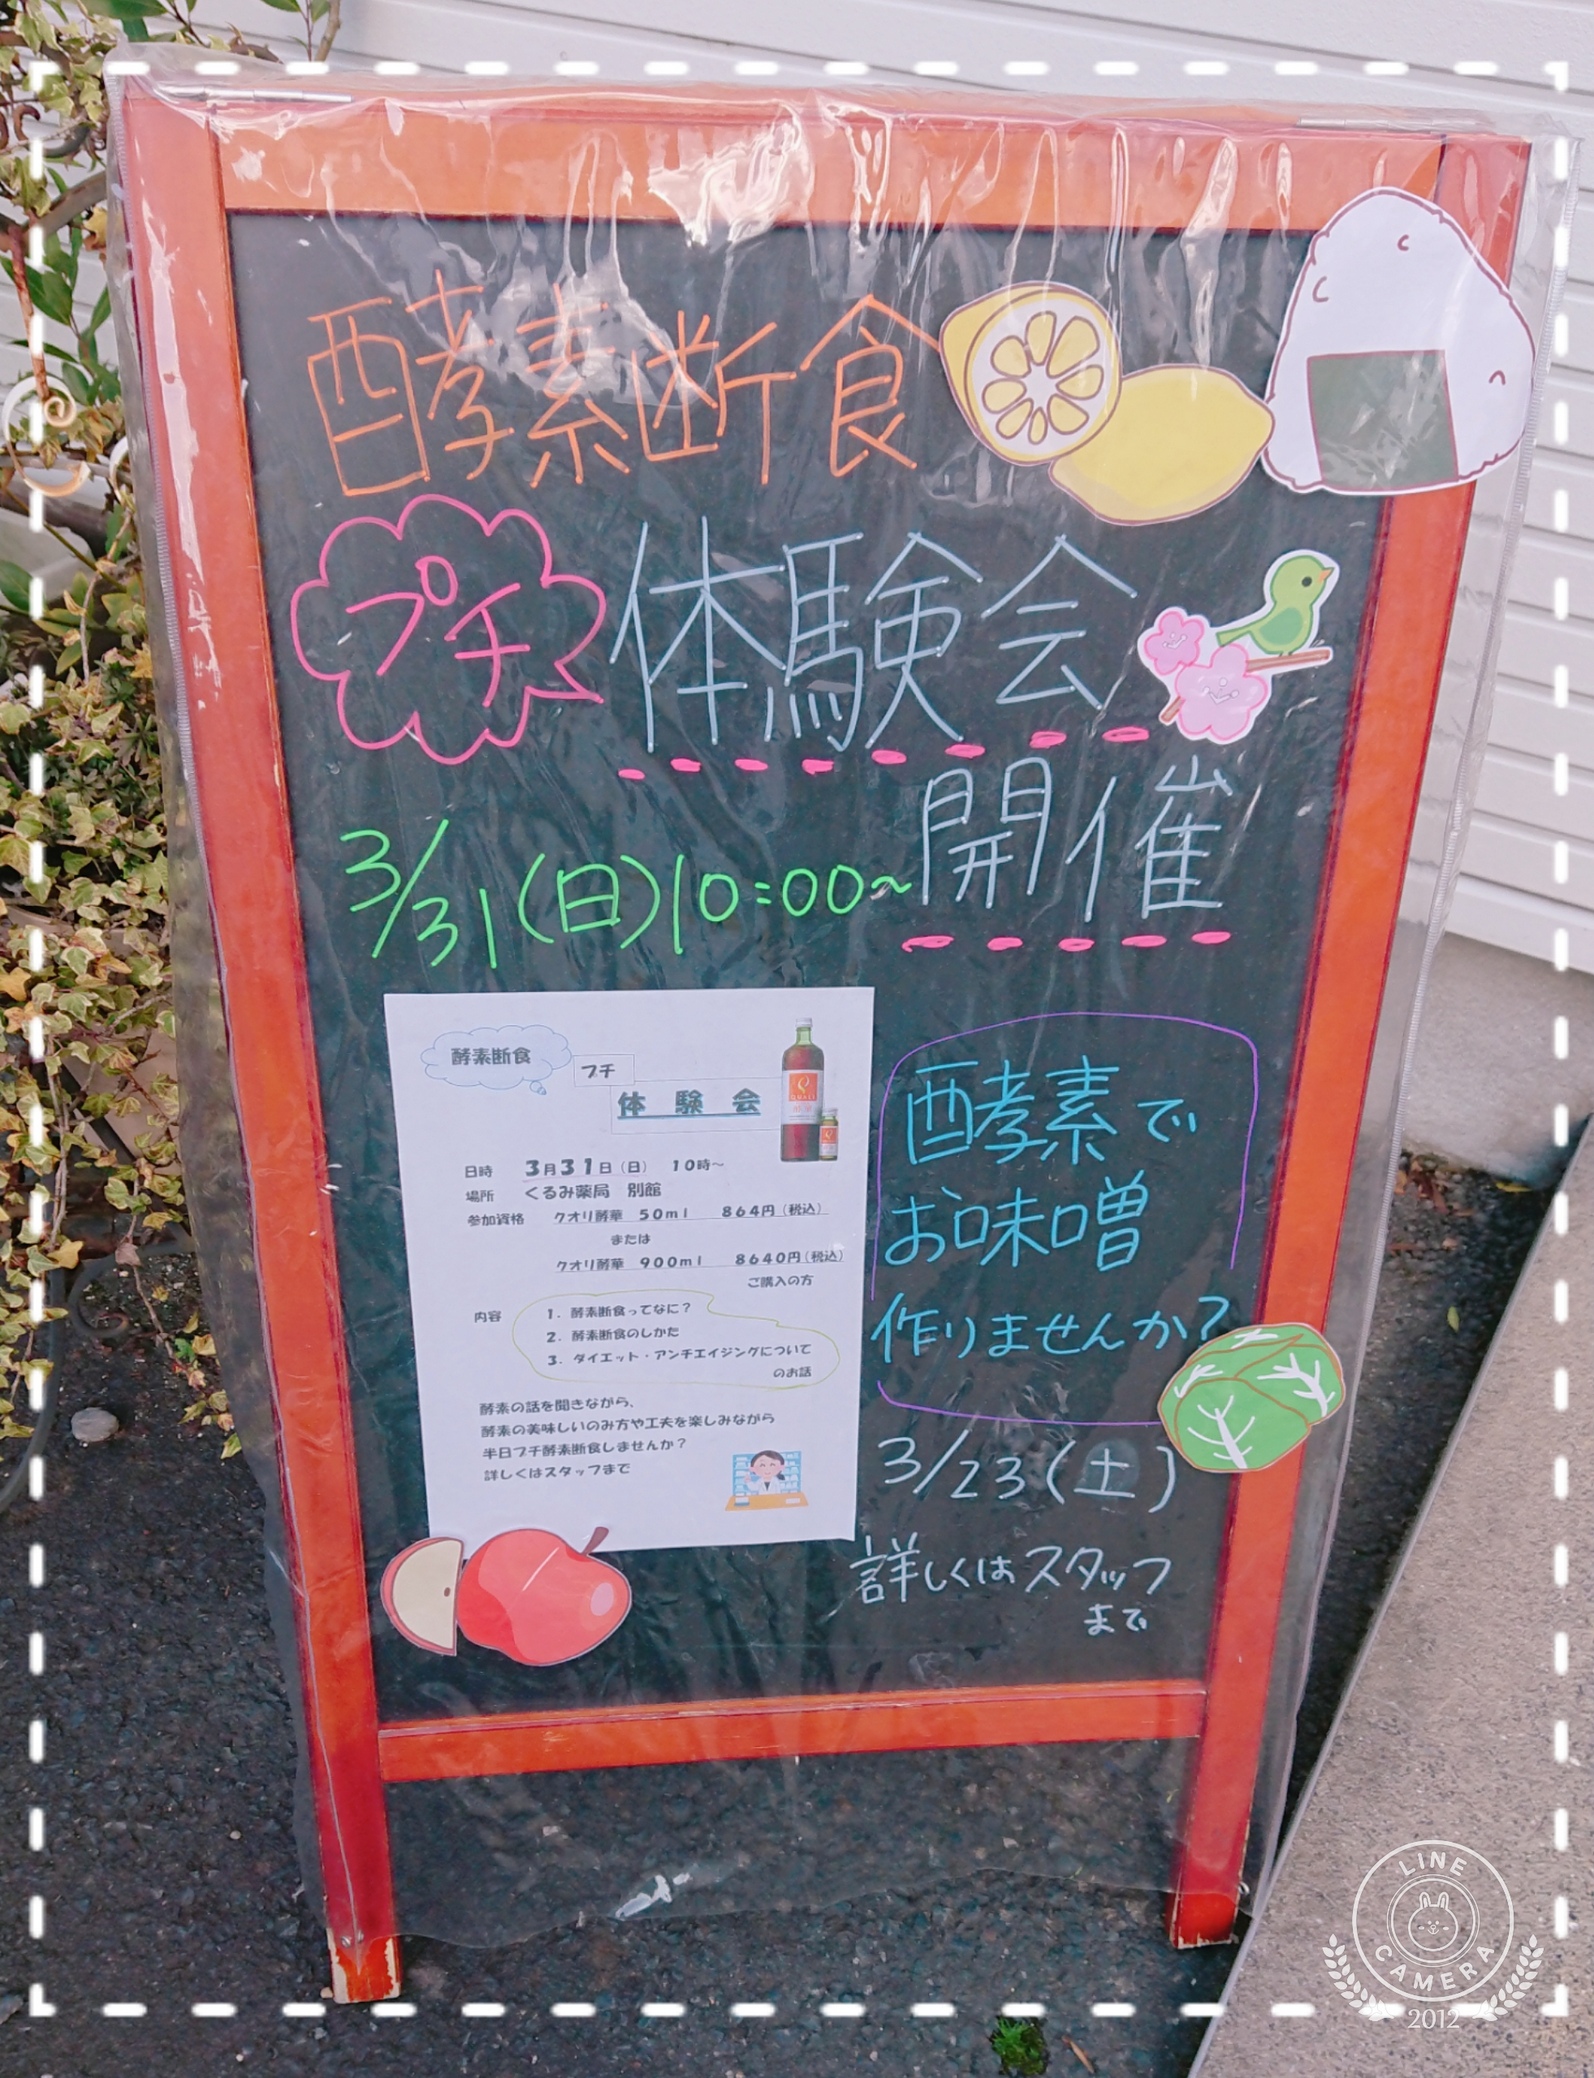 酵素断食
プチ
体験会
開催
3/31(日)10:00~
酵素断食
プチ
体験会
日時 3月31日(日) 10時~
場所 くるみ薬局 別館
参加資格 クオリ酵華 50ml 864円(税込)
または
クオリ酵華 900ml 8640円(税込)
ご購入の方
内容 1. 酵素断食ってなに?
2. 酵素断食のしかた
3. ダイエット・アンチエイジングについて
のお話
酵素の話を聞きながら、
酵素の美味しいのみ方や工夫を楽しみながら
半日プチ酵素断食しませんか?
詳しくはスタッフまで
酵素で
お味噌
作りませんか?
3/23(土)
詳しくはスタッフ
まで
LINE
CAMERA
2012